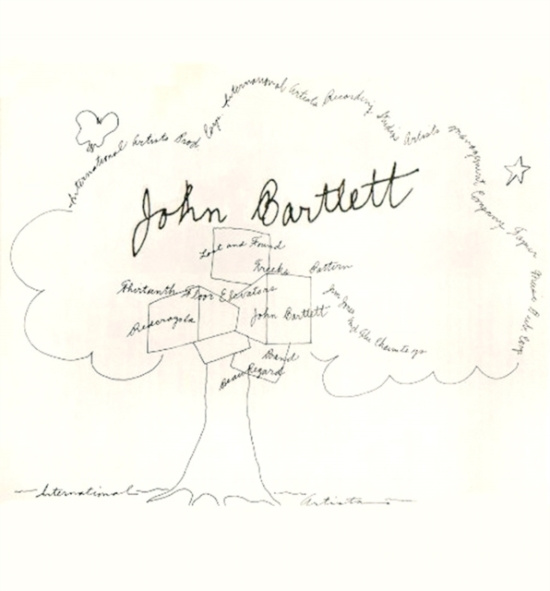 International Artists Prod Corp International Artists Recording Studios Artists management Company Tapier Music Pub Corp
John Bartlett
Lost and Found
Freeks
Pattern
Thirteenth Floor Elevators
Redcrayola
John Bartlett
and the Chaunteys
Band
Beau Regard
International Artists